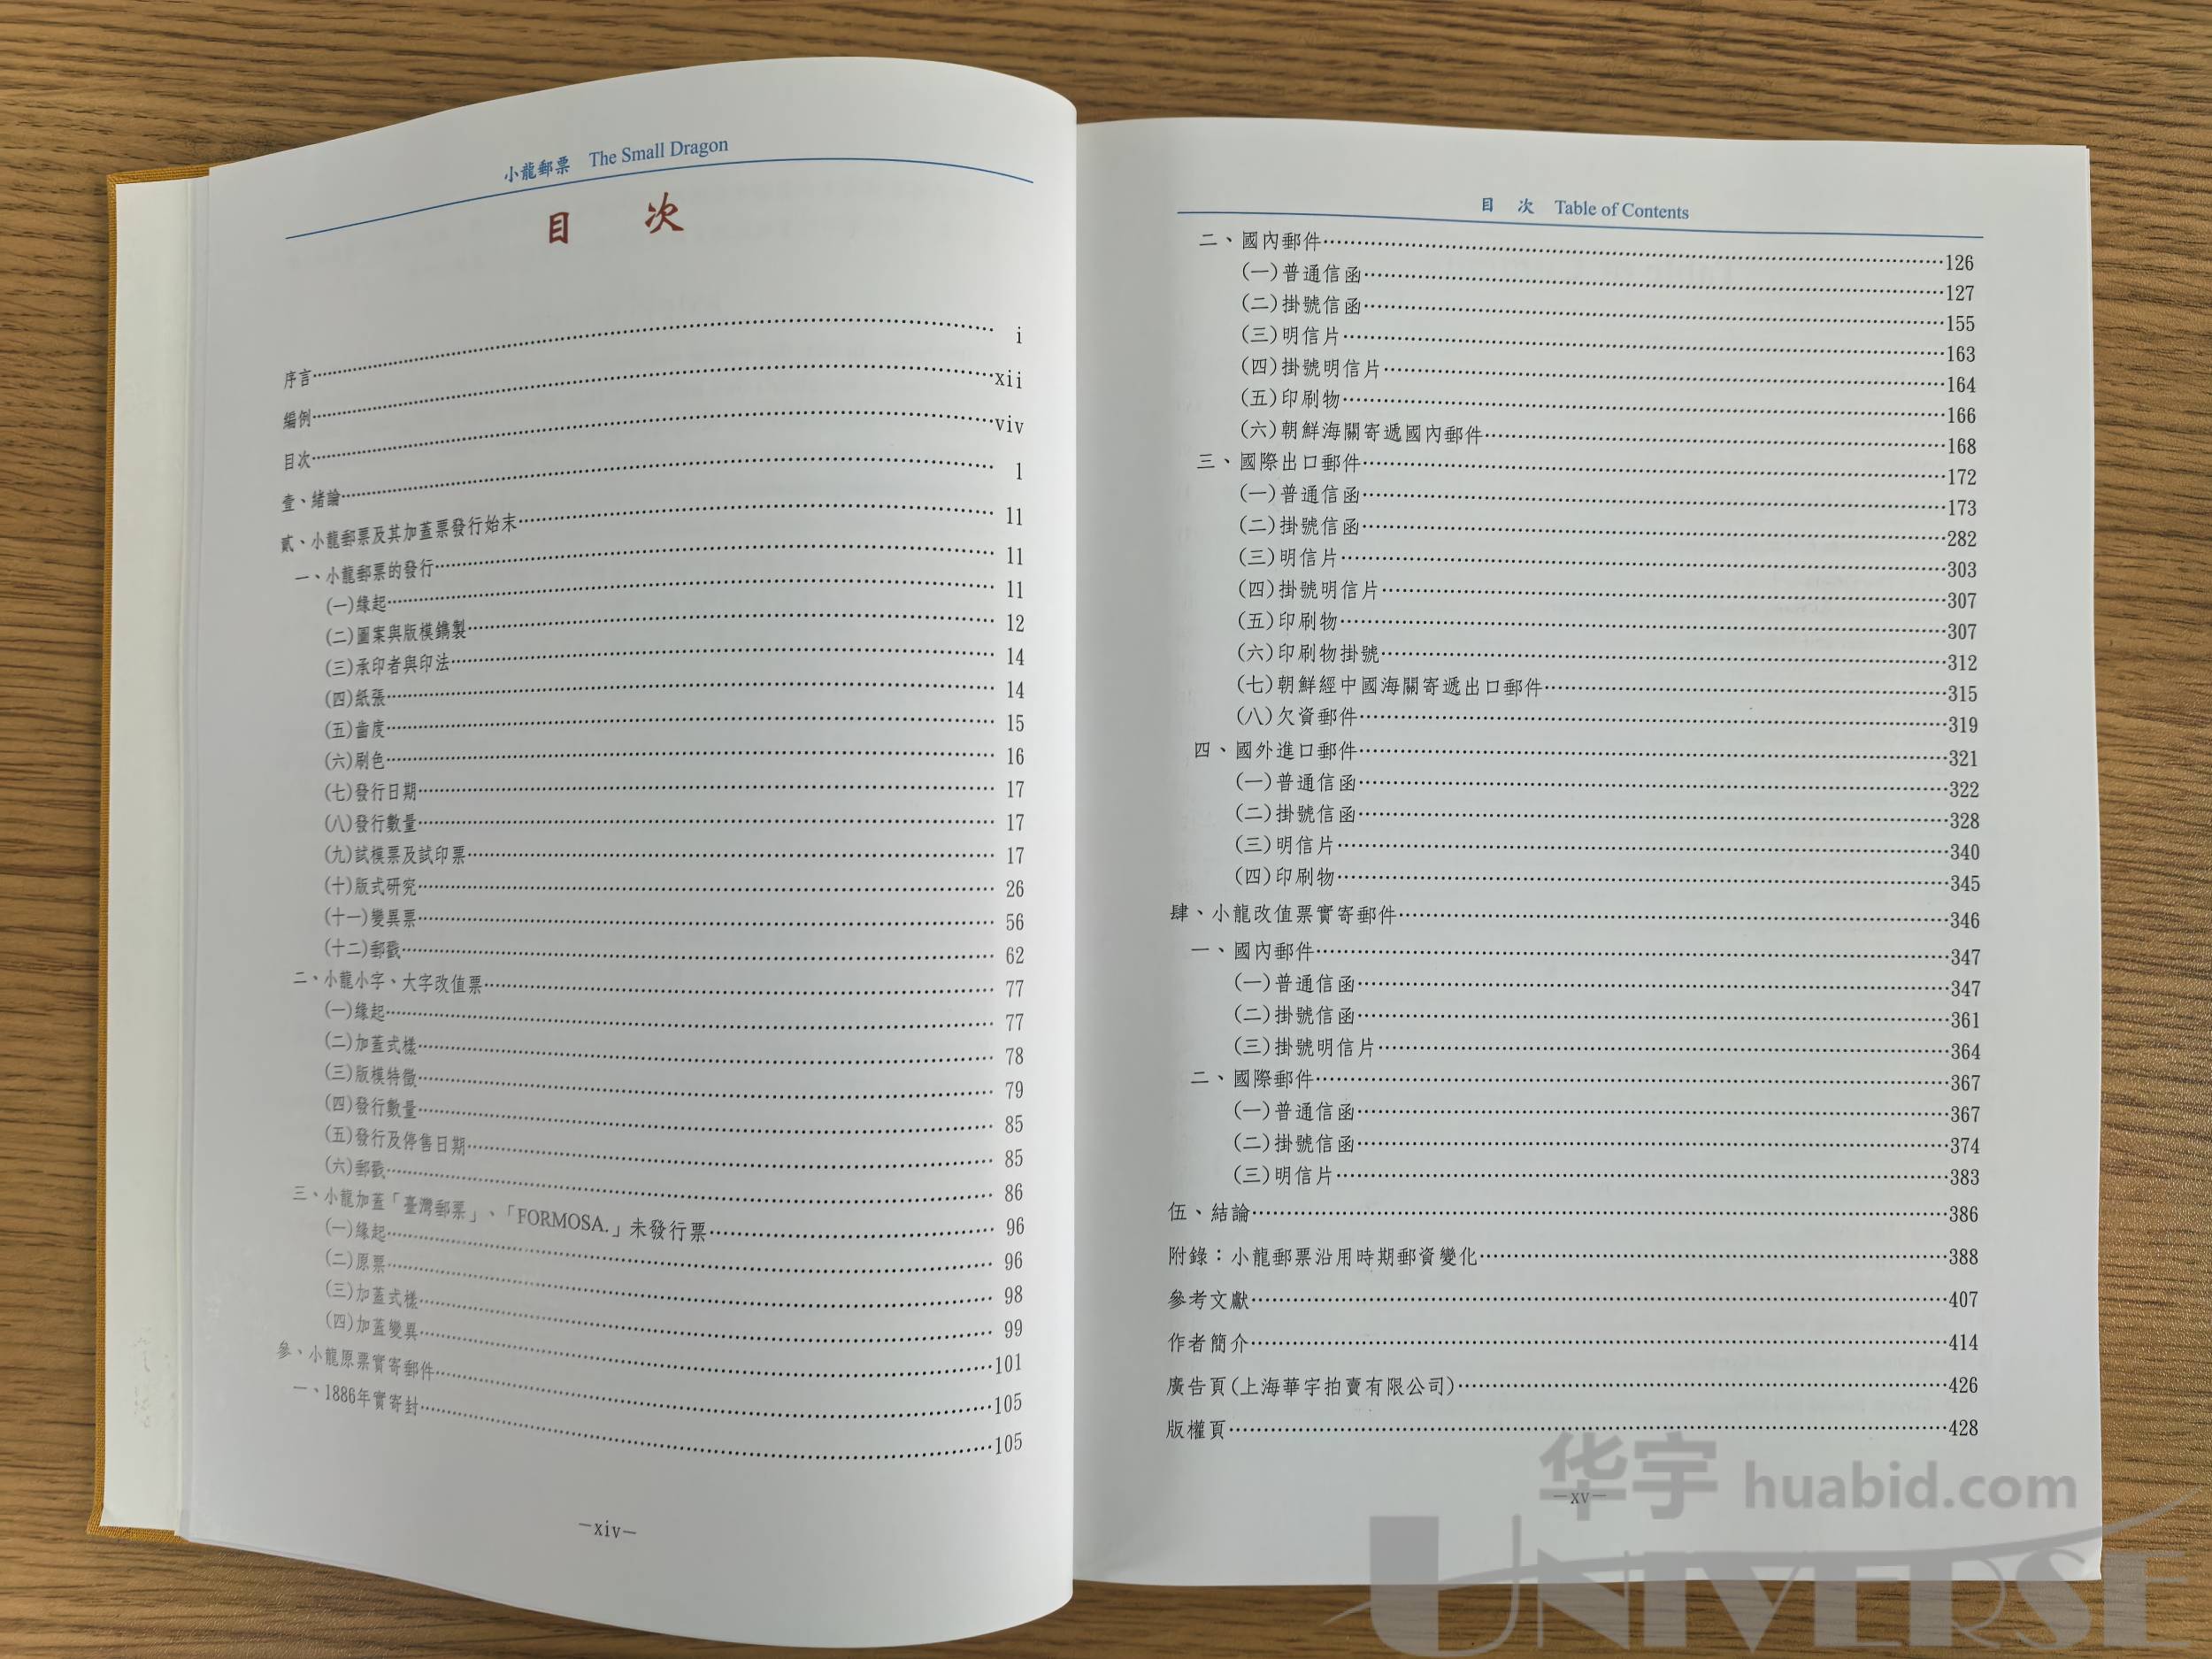 小龍郵票 The Small Dragon
目 次
序言 i
編例 xii
目次 viv
壹、緒論 1
貳、小龍郵票及其加蓋票發行始末 11
一、小龍郵票的發行 11
(一)緣起 11
(二)圖案與版模鐫製 12
(三)承印者與印法 14
(四)紙張 14
(五)齒度 15
(六)刷色 16
(七)發行日期 17
(八)發行數量 17
(九)試模票及試印票 17
(十)版式研究 26
(十一)變異票 56
(十二)郵戳 62
二、小龍小字、大字改值票 77
(一)緣起 77
(二)加蓋式樣 78
(三)版模特徵 79
(四)發行數量 85
(五)發行及停售日期 85
(六)郵戳 86
三、小龍加蓋「臺灣郵票」、「FORMOSA.」未發行票 96
(一)緣起 96
(二)原票 98
(三)加蓋式樣 99
(四)加蓋變異 101
參、小龍原票實寄郵件 105
一、1886年實寄封 105
—xiv—
目 次 Table of Contents
二、國內郵件 126
(一)普通信函 127
(二)掛號信函 155
(三)明信片 163
(四)掛號明信片 164
(五)印刷物 166
(六)朝鮮海關寄遞國內郵件 168
三、國際出口郵件 172
(一)普通信函 173
(二)掛號信函 282
(三)明信片 303
(四)掛號明信片 307
(五)印刷物 307
(六)印刷物掛號 312
(七)朝鮮經中國海關寄遞出口郵件 315
(八)欠資郵件 319
四、國外進口郵件 321
(一)普通信函 322
(二)掛號信函 328
(三)明信片 340
(四)印刷物 345
肆、小龍改值票實寄郵件 346
一、國內郵件 347
(一)普通信函 347
(二)掛號信函 361
(三)掛號明信片 364
二、國際郵件 367
(一)普通信函 367
(二)掛號信函 374
(三)明信片 383
伍、結論 386
附錄：小龍郵票沿用時期郵資變化 388
參考文獻 407
作者簡介 414
廣告頁(上海華宇拍賣有限公司) 426
版權頁 428
—xv—
华宇 huabid.com
UNIVERSE